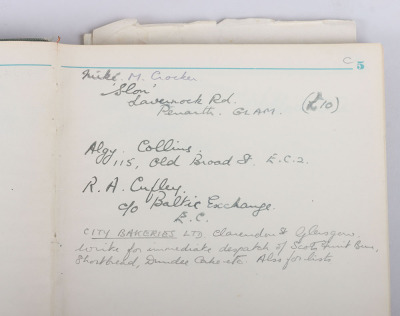 C 5
Mike. M. Crocker
'Slon'
Lavernock Rd.
Penarth. GLAM. (£10)
Algy. Collins.
115, Old Broad St. E.C.2.
R. A. Cufley.
c/o Baltic Exchange.
E.C.
CITY BAKERIES LTD. Clarendon St Glasgow.
Write for immediate despatch of Scots Fruit Buns,
Shortbread, Dundee Cake etc. Also for lists